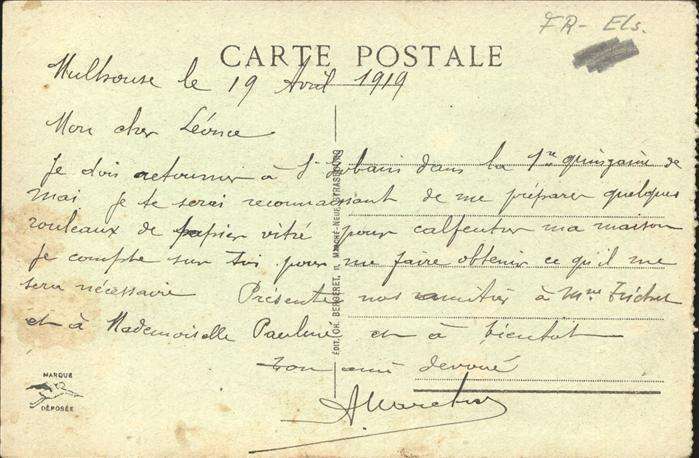 FR- Els.
CARTE POSTALE
Mulhouse le 19 Avril 1919
Mon cher Léonce
Je dois retourner à St Urbain dans la 1re quinzaine de
mai je te serai reconnaissant de me préparer quelques
rouleaux de papier vitré pour calfeutrer ma maison
Je compte sur toi pour me faire obtenir ce qu'il me
sera nécessaire Présente nos amitiés à Mme
et à Mademoiselle Pauline et à bientôt
Ton ami dévoué
ÉDIT. CH. BERGERET, STRASBOURG
MARQUE
DÉPOSÉE